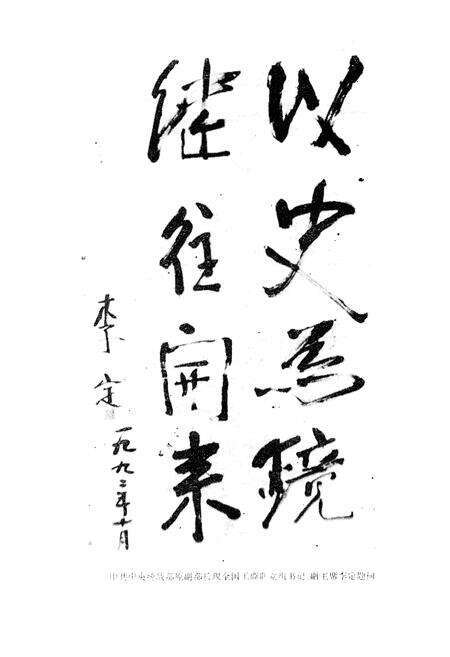 以史为镜
继往开来
李定
一九九二年十月
中共中央统战部原副部长现全国工商联党组书记 副主席李定题词